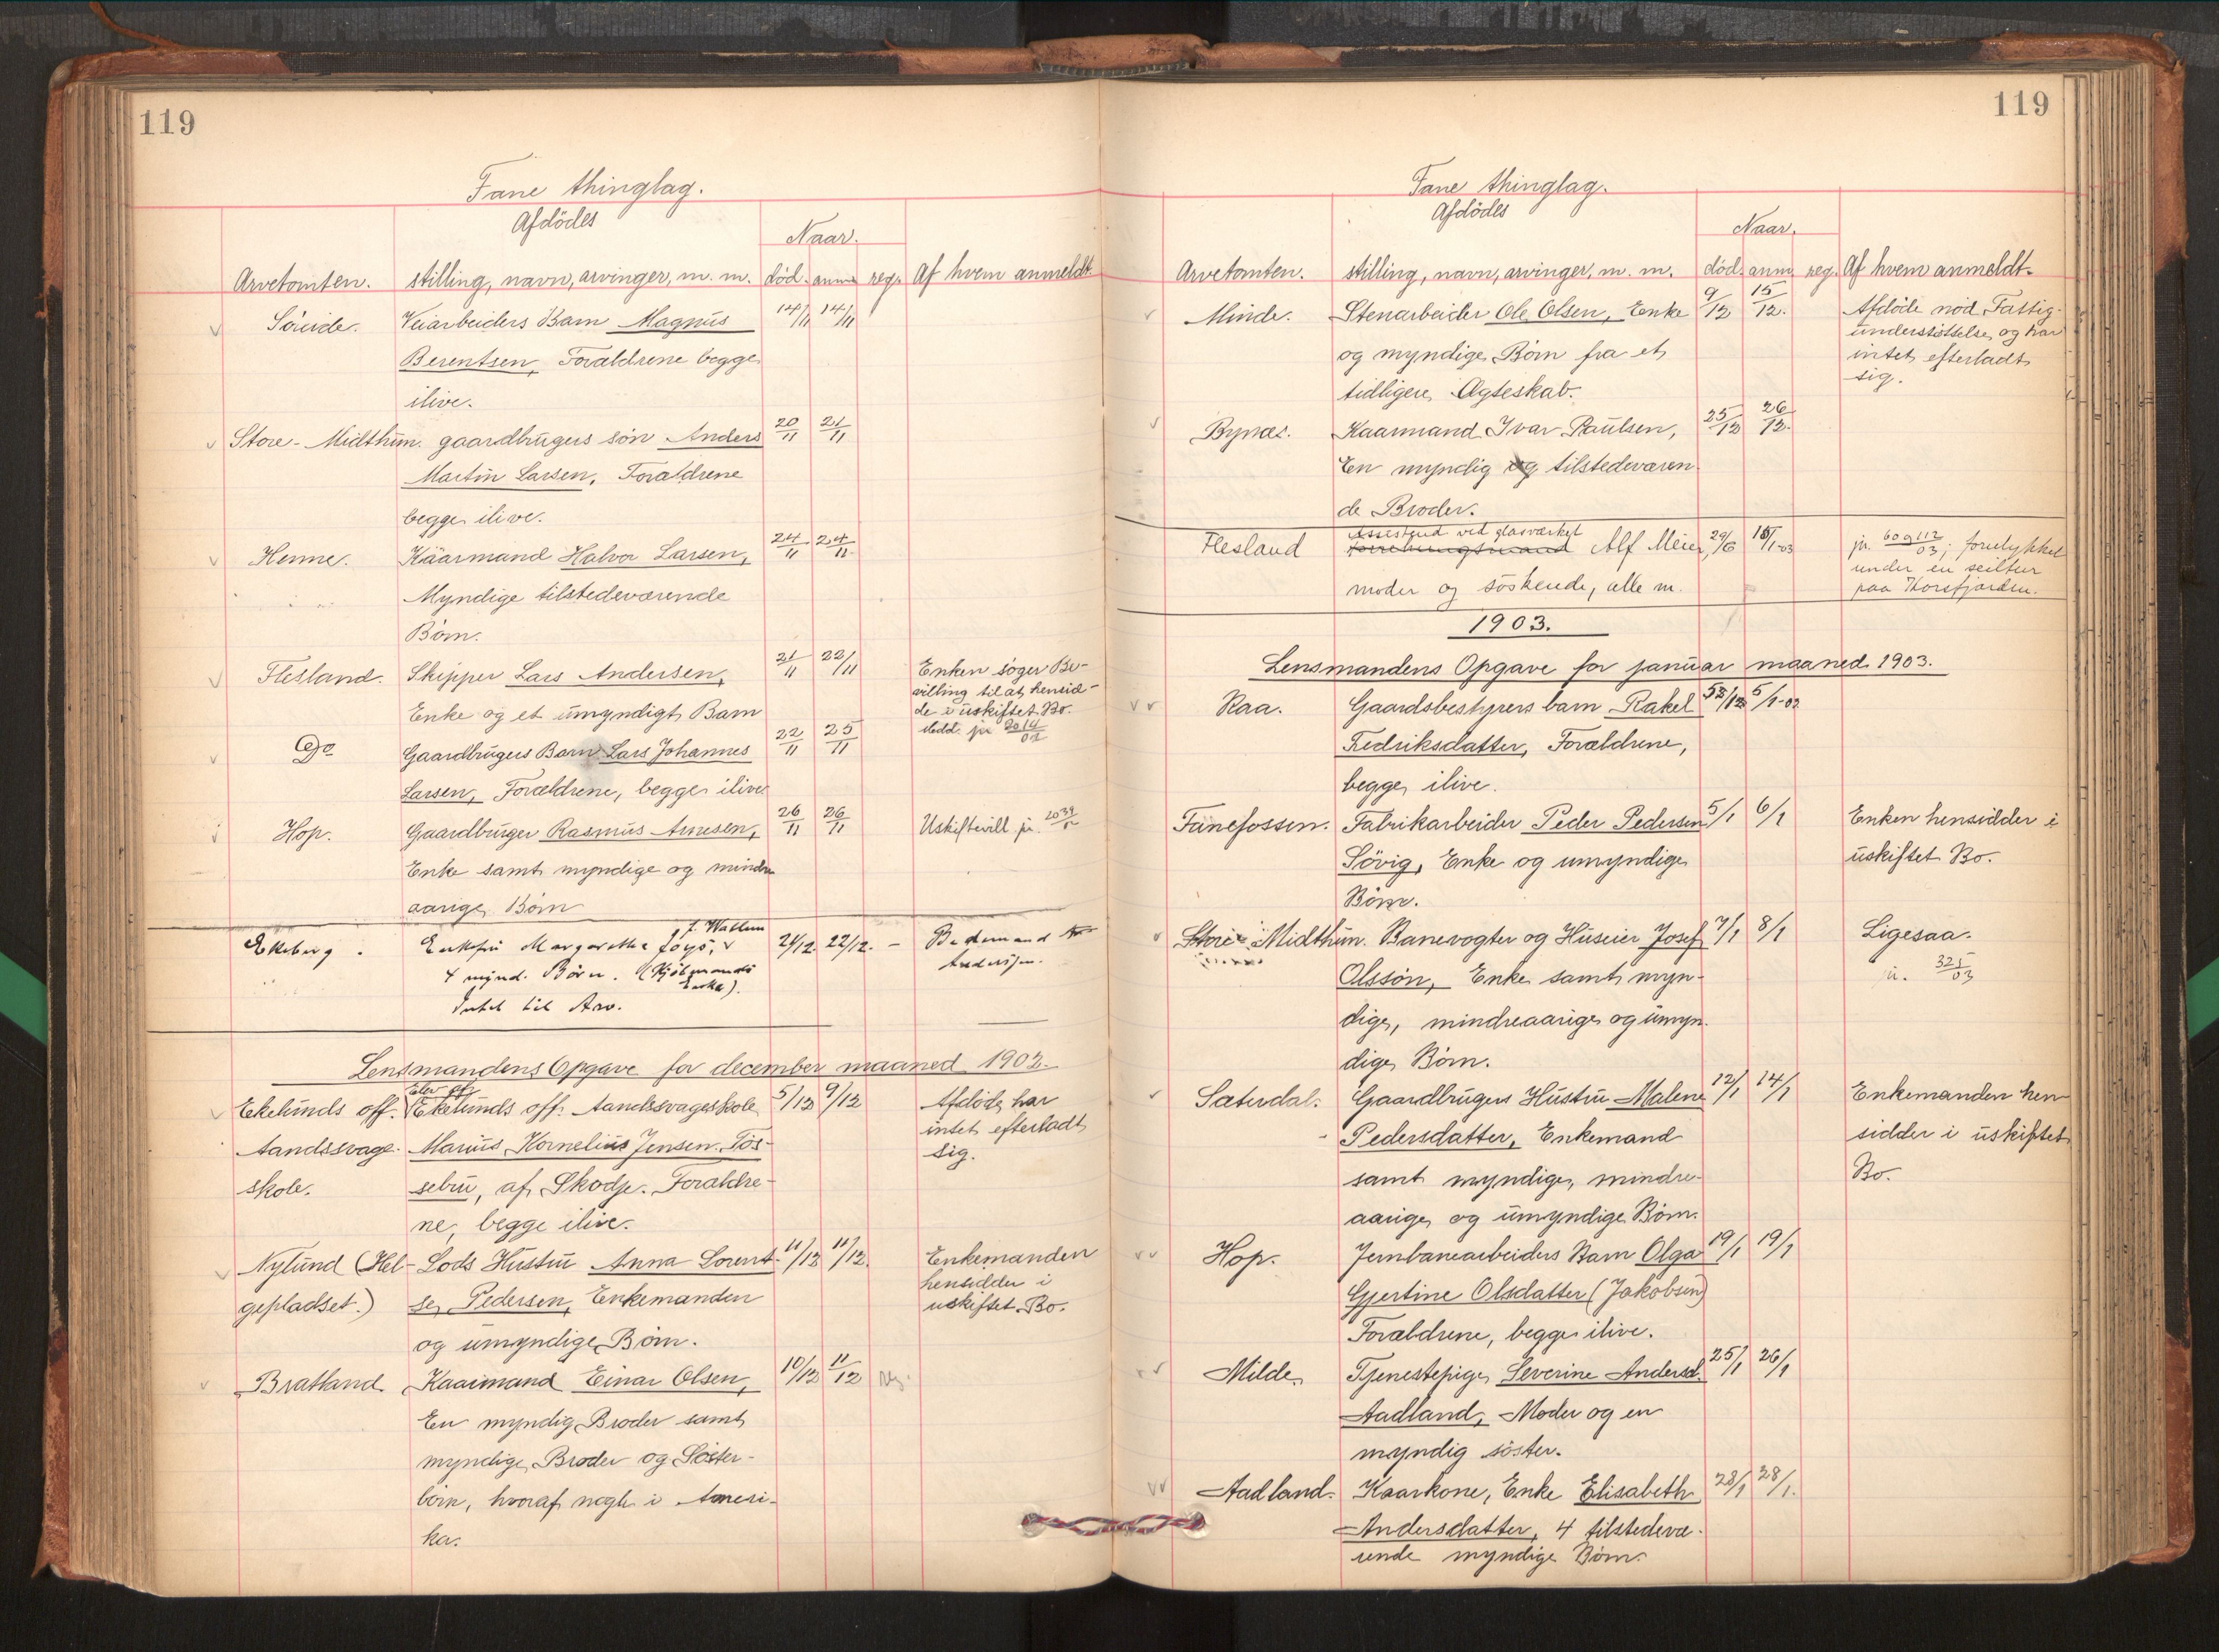 119
Fane thinglag.
Afdödes
Naar.
Arvetomten. stilling, navn, arvinger, m. m. död. anm. reg. Af hvem anmeldt.
Söreide. Veiarbeiders Barn Magnus 14/11 14/11
Berentsen, Forældrene begge
ilive.
Store-Midthun. gaardbrugers sön Anders 20/11 21/11
Martin Larsen, Forældrene
begge ilive.
Henne. Kaarmand Halvor Larsen, 24/11 24/11
Myndige tilstedeværende
Börn.
Flesland. Skipper Lars Andersen, 21/11 22/11 Enken söger Be-
Enke og et umyndigt Barn villing til at hensid-
de i uskiftet Bo.
Do Gaardbrugers Barn Lars Johannes 22/11 25/11 Medd. jr 2014/02
Larsen, Forældrene, begge ilive
Hop. Gaardbruger Rasmus Arnesen, 26/11 26/11 Uskiftevill. jr. 2039/02
Enke samt myndige og mindre
aarige Börn
f. Wallem
Ekeberg. Enkefru Margarethe 21/12. 22/12. – Bedemand
4 mynd. Börn. (Kjöbmands Andersen.
Enke).
Intet til Arv.
Lensmandens Opgave for december maaned 1902.
Elev af
Ekelunds off. Ekelunds off. Aandssvageskole 5/12 9/12 Afdöde har
Aandssvage- Marius Kornelius Jensen Tös- intet efterladt
skole. sebru, af Skodje. Forældre- sig.
ne, begge ilive.
Nylund (Hel- Lods Hustru Anna Lorent- 11/12 11/12. Enkemanden
gepladset.) se Pedersen, Enkemanden hensidder i
og umyndige Börn. uskiftet Bo.
Bratland Kaarmand Einar Olsen, 10/12 11/12
En myndig Broder samt
myndige Broder og Söster-
börn, hvoraf nogle i Ameri-
ka.
119
Fane thinglag.
Afdödes
Naar.
Arvetomten. stilling, navn, arvinger, m. m. död. anm. reg. Af hvem anmeldt.
Minde. Stenarbeider Ole Olsen, Enke 9/12 15/12. Afdöde nöd Fattig-
og myndige Börn fra et understöttelse og har
tidligere Ægteskab. intet efterladt
sig.
Bynæs. Kaarmand Ivar Paulsen, 25/12 26/12.
En myndig og tilstedeværen-
de Broder.
Assistend ved glasværket
Flesland Alf Meier, 29/6 15/1-03 jr. 60 og 112/03; forulykket
moder og söskende, alle m. under en seiltur
paa Korsfjorden.
1903.
Lensmandens Opgave for januar maaned 1903.
Raa. Gaardsbestyrers barn Rakel 5/1-03
Fredriksdatter, Forældrene,
begge ilive.
Fanefossen. Fabrikarbeider Peder Pedersen 5/1 6/1 Enken hensidder i
Sövig, Enke og umyndige uskiftet Bo.
Börn.
Store Midthun. Banevogter og Huseier Josef 7/1 8/1 Ligesaa.
Olssön, Enke samt myn- jr. 325/03
dige, mindreaarige og umyn-
dige Börn.
Sæterdal. Gaardbrugers Hustru Malene 12/1 14/1 Enkemanden hen-
Pedersdatter, Enkemand sidder i uskiftet
samt myndige, mindre- Bo.
aarige og umyndige Börn.
Hop. Jernbanearbeiders Barn Olga 19/1 19/1
Gjertine Olsdatter (Jakobsen)
Forældrene, begge ilive.
Milde. Tjenestepige Severine Andersd. 25/1 26/1
Aadland, Moder og en
myndig söster.
Aadland. Kaarkone, Enke Elisabeth 28/1 28/1.
Andersdatter, 4 tilstedevæ-
rende myndige Börn.